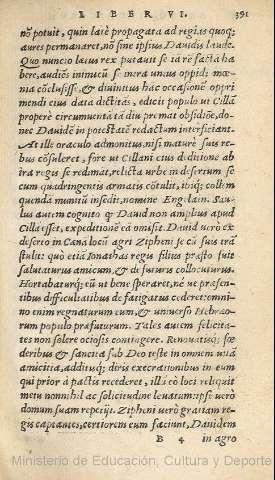 LIBER VI. 391
nō potuit, quin latè propagata ad regias quoq;
aures permanaret, nō sine ipsius Dauidis laude.
Quo nuncio lætus rex putauit se tā rē factā ha
bere, audiēs inimicū se intra unius oppidi mœ
nia cōclusisse & diuinitus hāc occasionē oppri
mendi eius data dictitās, edicit populo ut Cillā
properè circumuenta tā diu premāt obsidiōe, do-
nec Dauidē in potestatē redactum interficiant.
At ille oraculo admonitus, nisi maturè suis re-
bus cōsuleret, fore ut Cillani eius deditione ab
ira regis se redimāt, relicta urbe in desertum se
cum quadringentis armatis cōtulit, ibiq; collem
quendā munitū insedit, nomine Englain. Sau-
lus autem cognito q̃ Dauid non amplius apud
Cillā esset, expeditionē eā omisit. Dauid verò ex
deserto in Cana locū agri Zipheni se cū suis trā
stulit: quò etiā Ionathas regis filius præstò fuit
salutaturus amicum, & de futuris collocuturus.
Hortabaturq; eū ut bene speraret, ne ue præsen-
tibus difficultatibus defatigatus cederet: omni-
no enim regnaturum eum, & uniuerso Hebræo-
rum populo præfuturum. Tales autem felicita-
tes non solere ociosis contingere. Renouatisq; fœ
deribus & sanctiſsa sub Deo teste in omnem uitā
amicitia, additisq; diris execrationibus in eum
qui prior à pactis recederet, illā eò loci reliquit
metu nonnihil ac solicitudine leuatum: ipse uerò
domum suam repetijt. Zipheni verò gratiam re-
gis captantes, certiorem eum faciunt, Dauidem
B 4 in agro
Ministerio de Educación, Cultura y Deporte